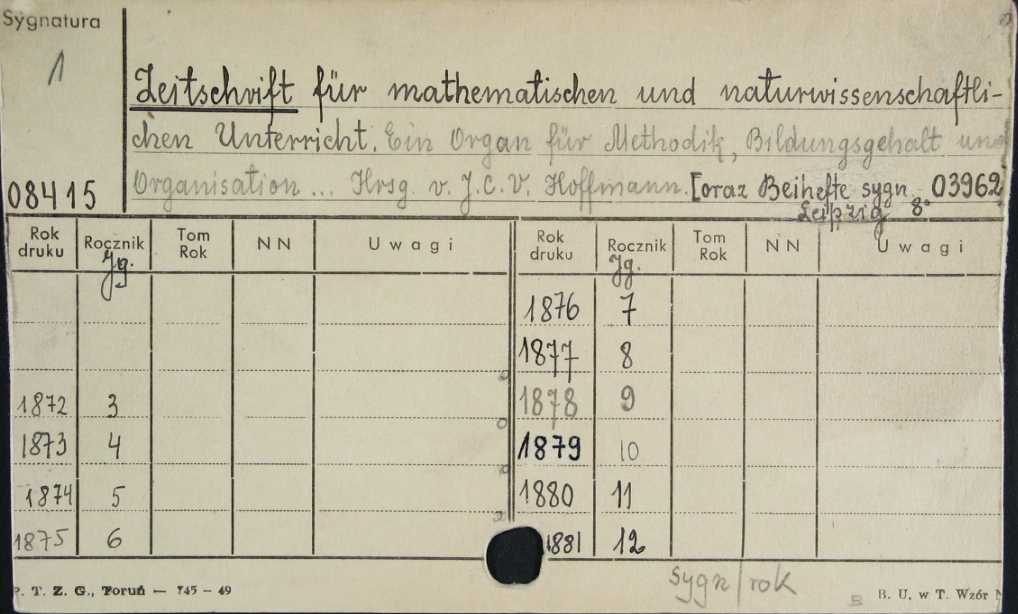 Sygnatura
1
Zeitschrift für mathematischen und naturwissenschaftli-
chen Unterricht. Ein Organ für Methodik, Bildungsgehalt und
Organisation ... Hrsg. v. J.C.V. Hoffmann. [oraz Beihefte sygn 03962]
08415
Leipzig 8°
Rok druku Rocznik Tom Rok NN Uwagi Rok druku Rocznik Tom Rok NN Uwagi
Jg. Jg.
1876 7
1877 8
1872 3 1878 9
1873 4 1879 10
1874 5 1880 11
1875 6 1881 12
P. T. Z. G., Toruń — 745 – 49
sygn/rok
B. U. w T. Wzór